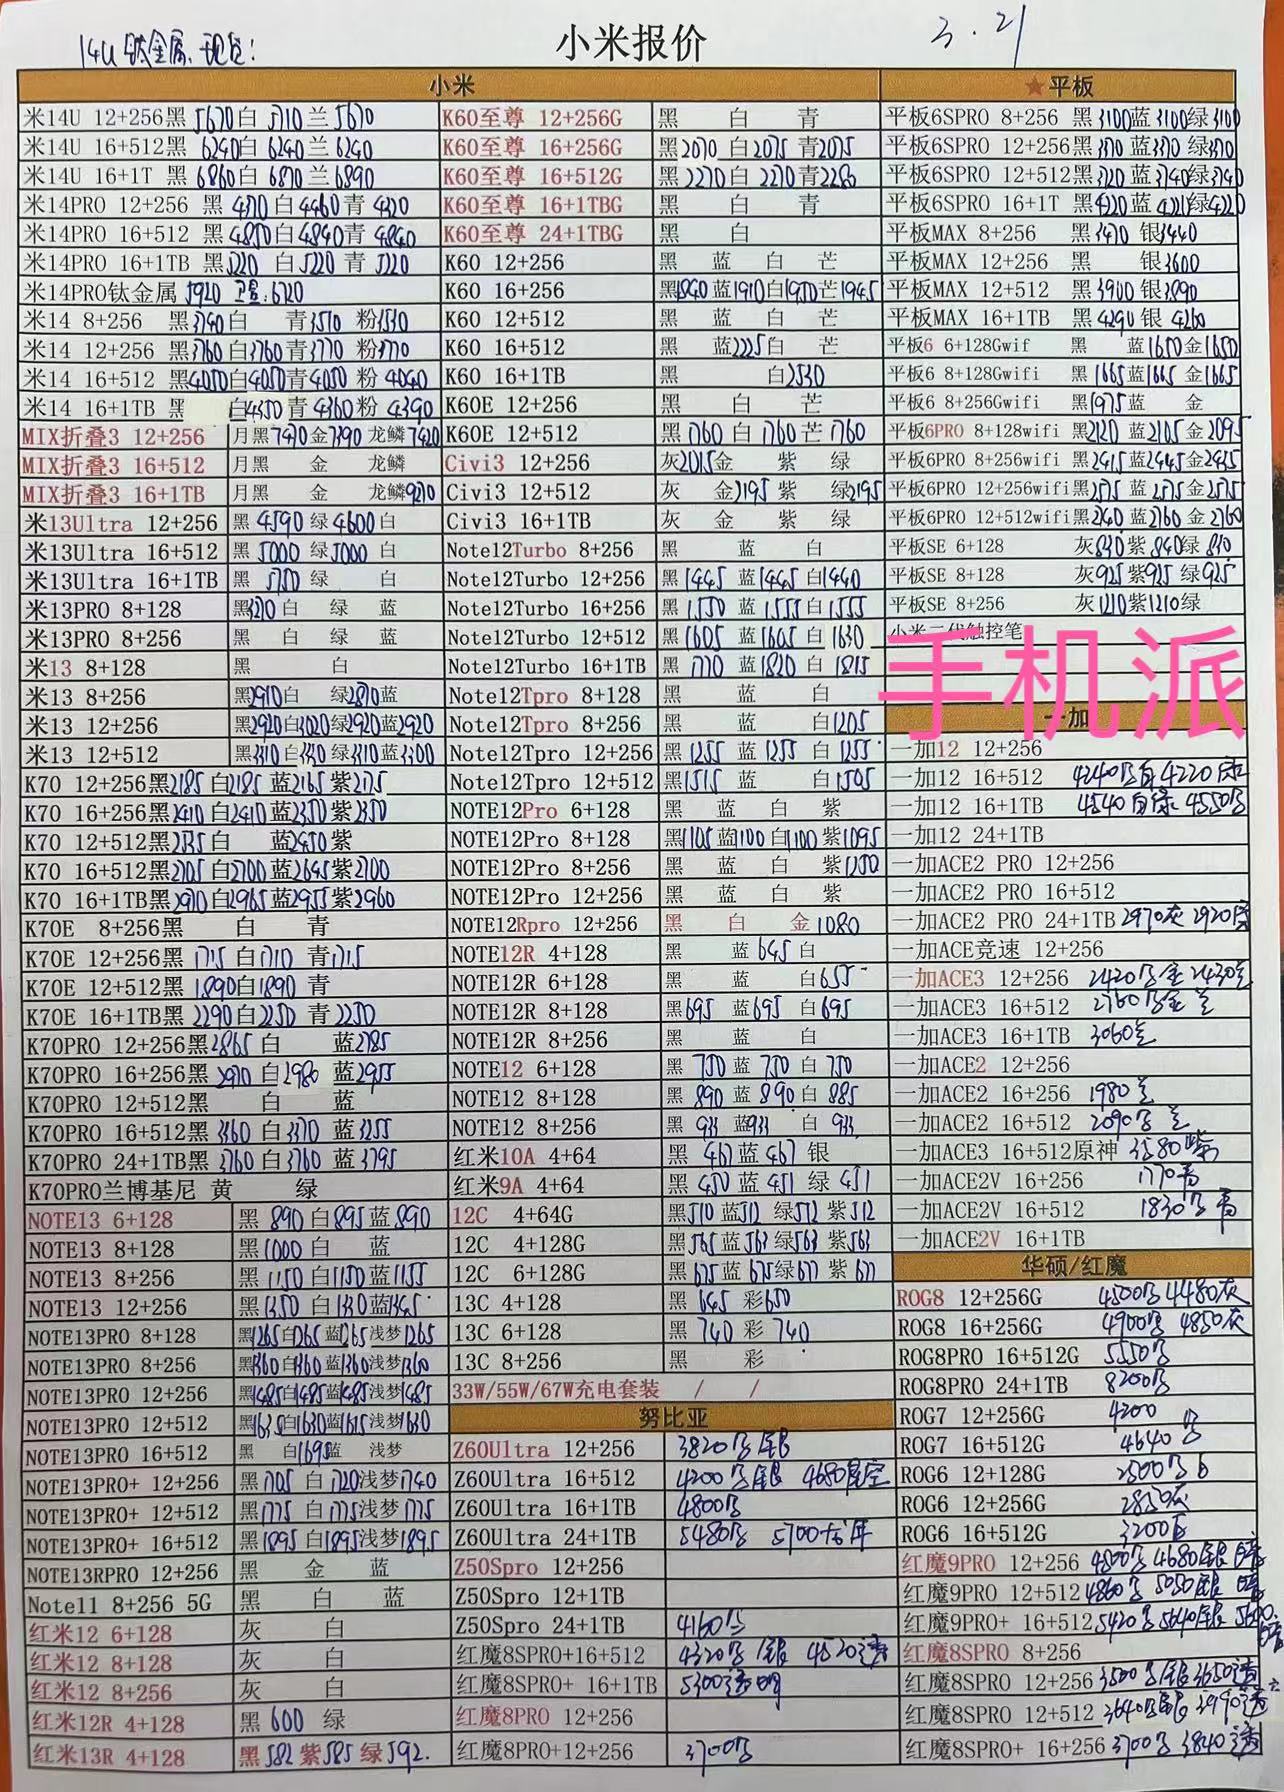 14U 钛金属、现货！
小米报价
3.21
小米
米14U 12+256黑 5670白 5710兰 5670
米14U 16+512黑 6240白 6240兰 6240
米14U 16+1T 黑 6860白 6870兰 6890
米14PRO 12+256 黑 4370白 4460青 4320
米14PRO 16+512 黑 4850白 4840青 4840
米14PRO 16+1TB 黑5220 白5220青 5220
米14PRO钛金属 5920 卫星:6720
米14 8+256 黑3740白 青3510 粉3530
米14 12+256 黑3760白3760青3770 粉3770
米14 16+512 黑4050白4050青4050粉 4040
米14 16+1TB 黑 白4350青 4360粉 4390
MIX折叠3 12+256 月黑7470金7390 龙鳞7420
MIX折叠3 16+512 月黑 金 龙鳞
MIX折叠3 16+1TB 月黑 金 龙鳞9270
米13Ultra 12+256 黑 4590 绿4600白
米13Ultra 16+512 黑 5000 绿5000 白
米13Ultra 16+1TB 黑 5750 绿 白
米13PRO 8+128 黑3270白 绿 蓝
米13PRO 8+256 黑 白 绿 蓝
米13 8+128 黑 白
米13 8+256 黑2910白 绿2870蓝
米13 12+256 黑2920白3020绿2920蓝2920
米13 12+512 黑3310白3330绿3310蓝3300
K70 12+256黑2185白2185蓝2165紫2175
K70 16+256黑2410白2410蓝2350紫2350
K70 12+512黑2535白 蓝2450紫
K70 16+512黑2705白2700蓝2645紫2700
K70 16+1TB黑2970白2965蓝2955紫2960
K70E 8+256黑 白 青
K70E 12+256黑 1715白1710 青1715
K70E 12+512黑 1890白1890 青
K70E 16+1TB黑 2290白2250 青2250
K70PRO 12+256黑2865白 蓝2785
K70PRO 16+256黑2970白2980 蓝2955
K70PRO 12+512黑 白 蓝
K70PRO 16+512黑 3360白3370 蓝3255
K70PRO 24+1TB黑 3760白3760 蓝3795
K70PRO兰博基尼 黄 绿
NOTE13 6+128 黑 890白895蓝890
NOTE13 8+128 黑1000白 蓝
NOTE13 8+256 黑1150白1150蓝1155
NOTE13 12+256 黑1350 白1330蓝1345
NOTE13PRO 8+128 黑1265白1265蓝1265浅梦1265
NOTE13PRO 8+256 黑1360白1360蓝1360浅梦1360
NOTE13PRO 12+256 黑1485白1485蓝1485浅梦1485
NOTE13PRO 12+512 黑1635白1630蓝1615浅梦1630
NOTE13PRO 16+512 黑 白1695蓝 浅梦
NOTE13PRO+ 12+256 黑1705 白1720浅梦1740
NOTE13PRO+ 12+512 黑1775 白1775浅梦1775
NOTE13PRO+ 16+512 黑1895 白1895浅梦1895
NOTE13RPRO 12+256 黑 金 蓝
Note11 8+256 5G 黑 白 蓝
红米12 6+128 灰 白
红米12 8+128 灰 白
红米12 8+256 灰 白
红米12R 4+128 黑 600 绿
红米13R 4+128 黑582紫585绿592.
K60至尊 12+256G 黑 白 青
K60至尊 16+256G 黑2070 白2075青2075
K60至尊 16+512G 黑2270白 2270青2280
K60至尊 16+1TBG 黑 白 青
K60至尊 24+1TBG 黑 白
K60 12+256 黑 蓝 白 芒
K60 16+256 黑1840蓝1910白1950芒1945
K60 12+512 黑 蓝 白 芒
K60 16+512 黑 蓝2225白 芒
K60 16+1TB 黑 白2530
K60E 12+256 黑 白 芒
K60E 12+512 黑1760 白1760芒1760
Civi3 12+256 灰2015金 紫 绿
Civi3 12+512 灰 金2195紫 绿2195
Civi3 16+1TB 灰 金 紫 绿
Note12Turbo 8+256 黑 蓝 白
Note12Turbo 12+256 黑1445 蓝1445白1440
Note12Turbo 16+256 黑1550 蓝1555白1555
Note12Turbo 12+512 黑1605 蓝1605白 1630
Note12Turbo 16+1TB 黑 1770 蓝1820白 1815
Note12Tpro 8+128 黑 蓝 白
Note12Tpro 8+256 黑 蓝 白1205
Note12Tpro 12+256 黑1255 蓝1255 白1255
Note12Tpro 12+512 黑1515 蓝 白1505
NOTE12Pro 6+128 黑 蓝 白 紫
NOTE12Pro 8+128 黑1105蓝1100白1100紫1095
NOTE12Pro 8+256 黑 蓝 白 紫1250
NOTE12Pro 12+256 黑 蓝 白 紫
NOTE12Rpro 12+256 黑 白 金1080
NOTE12R 4+128 黑 蓝645白
NOTE12R 6+128 黑 蓝 白655
NOTE12R 8+128 黑695 蓝695 白695
NOTE12R 8+256 黑 蓝 白
NOTE12 6+128 黑 750蓝 750白 750
NOTE12 8+128 黑 890蓝 890白 885
NOTE12 8+256 黑 933 蓝933 白 933
红米10A 4+64 黑 467蓝467 银
红米9A 4+64 黑 450蓝 451 绿 451
12C 4+64G 黑510蓝512 绿512紫512
12C 4+128G 黑565蓝563绿563紫563
12C 6+128G 黑675蓝 675绿677紫 677
13C 4+128 黑 645 彩650
13C 6+128 黑 740 彩 740
13C 8+256 黑 彩
33W/55W/67W充电套装 / /
努比亚
Z60Ultra 12+256 3820黑银
Z60Ultra 16+512 4200黑银 4680星空
Z60Ultra 16+1TB 4800黑
Z60Ultra 24+1TB 5480黑 5700
Z50Spro 12+256
Z50Spro 12+1TB
Z50Spro 24+1TB 4160黑
红魔8SPRO+16+512 4320黑/银 4520透
红魔8SPRO+ 16+1TB 5300透明
红魔8PRO 12+256
红魔8PRO+12+256 3700黑
★平板
平板6SPRO 8+256 黑3100蓝3100绿3100
平板6SPRO 12+256黑3370蓝3370绿3370
平板6SPRO 12+512黑3720蓝3740绿3740
平板6SPRO 16+1T 黑4220蓝4221绿4220
平板MAX 8+256 黑3470 银3440
平板MAX 12+256 黑 银3600
平板MAX 12+512 黑3900银3890
平板MAX 16+1TB 黑4290银 4260
平板6 6+128Gwif 黑 蓝1650金1650
平板6 8+128Gwifi 黑1665蓝1665 金1665
平板6 8+256Gwifi 黑1975蓝 金
平板6PRO 8+128wifi 黑2120 蓝2105金2095
平板6PRO 8+256wifi 黑2415蓝2445金2435
平板6PRO 12+256wifi黑2575蓝2575金2575
平板6PRO 12+512wifi黑2760蓝2760金2760
平板SE 6+128 灰830紫840绿 810
平板SE 8+128 灰925紫925 绿925
平板SE 8+256 灰1210紫1210绿
小米二代触控笔
手机派
一加
一加12 12+256
一加12 16+512 4240黑白4220绿
一加12 16+1TB 4540白绿 4550黑
一加12 24+1TB
一加ACE2 PRO 12+256
一加ACE2 PRO 16+512
一加ACE2 PRO 24+1TB 2970灰 2920绿
一加ACE竞速 12+256
一加ACE3 12+256 2420黑金2430兰
一加ACE3 16+512 2760黑金兰
一加ACE3 16+1TB 3060兰
一加ACE2 12+256
一加ACE2 16+256 1980兰
一加ACE2 16+512 2090黑兰
一加ACE3 16+512原神 3280紫
一加ACE2V 16+256 1770青
一加ACE2V 16+512 1830黑青
一加ACE2V 16+1TB
华硕/红魔
ROG8 12+256G 4500黑4480灰
ROG8 16+256G 4900黑 4850灰
ROG8PRO 16+512G 5550黑
ROG8PRO 24+1TB 8200黑
ROG7 12+256G 4200 黑
ROG7 16+512G 4640 黑
ROG6 12+128G 2500黑白
ROG6 12+256G 2850灰
ROG6 16+512G 3200白
红魔9PRO 12+256 4800黑4680银
红魔9PRO 12+512 4860黑 5050银 暗
红魔9PRO+ 16+512 5420黑5640银 5640暗
红魔8SPRO 8+256
红魔8SPRO 12+256 3500黑/银3650透
红魔8SPRO 12+512 3640黑银 3990透
红魔8SPRO+ 16+256 3700黑 3840透